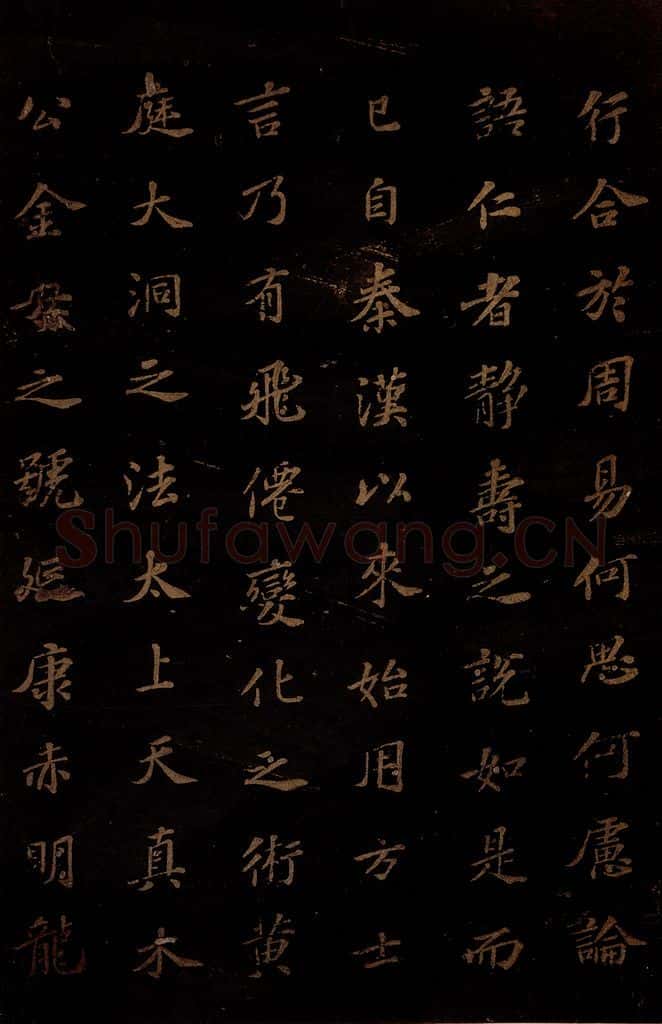 行合於周易何思何慮論
語仁者靜壽之說如是而
已自秦漢以來始用方士
言乃有飛僊變化之術黃
庭大洞之法太上天真木
公金母之號延康赤明龍
Shufawang.CN